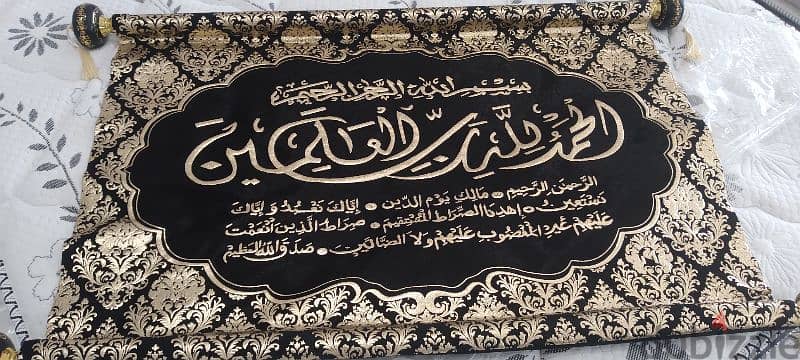 بسم الله الرحمن الرحيم
الحمد لله رب العالمين
الرحمن الرحيم • مالك يوم الدين • إياك نعبد وإياك
نستعين • اهدنا الصراط المستقيم • صراط الذين أنعمت
عليهم غير المغضوب عليهم ولا الضالين • صدق الله العظيم
dubizzle